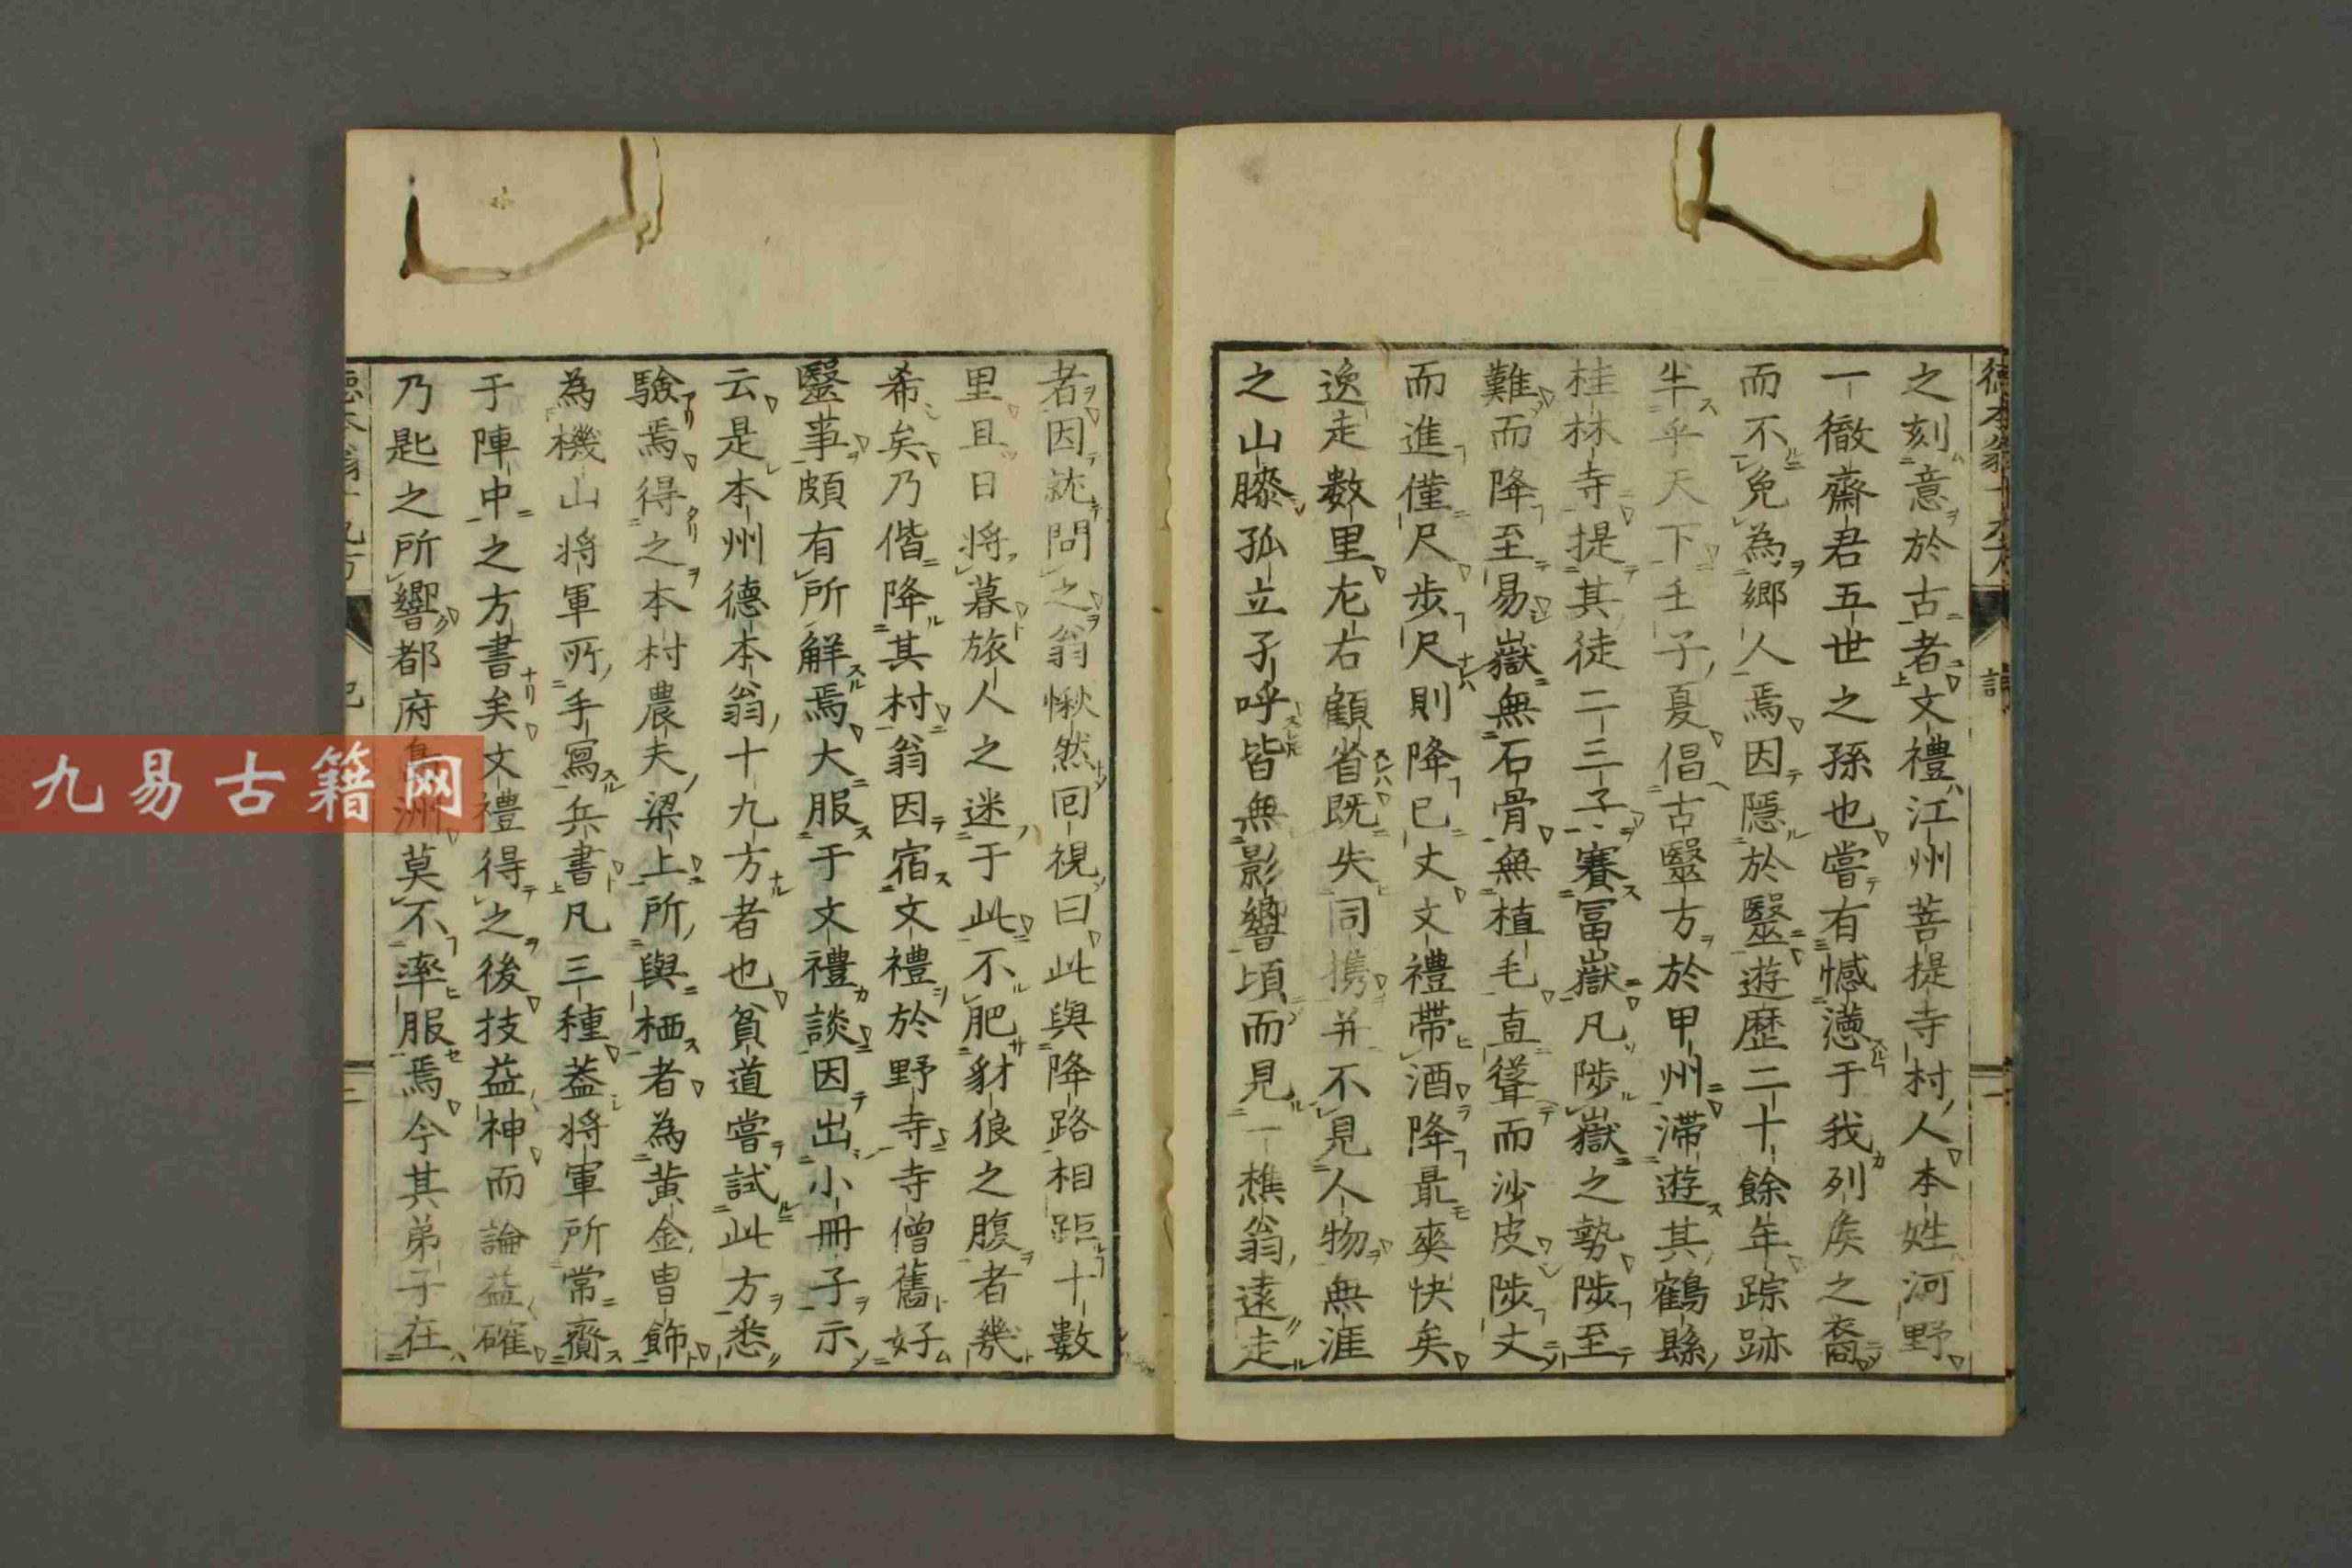 之刻意於古者文禮江州菩提寺村人本姓河野
一徹齋君五世之孫也嘗有憾懣于我列矦之裔
而不免為鄉人焉因隱於毉遊歷二十餘年踪跡
半乎天下壬子夏倡古毉方於甲州滯遊其鶴縣
桂林寺提其徒二三子賽冨嶽凡陟嶽之勢陟至
難而降至易嶽無石骨無植毛直聳而沙皮陟丈
而進僅尺步尺則降已丈文禮帶酒降最爽快矣
逸走數里左右顧省既失同携并不見人物無涯
之山膝孤立孑呼皆無影響頃而見一樵翁遠走
者因就問之翁愀然回視曰此與降路相距十數
里且日將暮旅人之迷于此不肥豺狼之腹者幾
希矣乃偕降其村翁因宿文禮於野寺寺僧舊好
毉事頗有所解焉大服于文禮談因出小冊子示
云是本州德本翁十九方者也貧道嘗試此方悉
驗焉得之本村農夫梁上所與栖者為黃金曺飾
為機山將軍所手寫兵書凡三種葢將軍所常齎
于陣中之方書矣文禮得之後技益神而論益確
乃匙之所響都府島洲莫不率服焉今其弟子在
九易古籍网